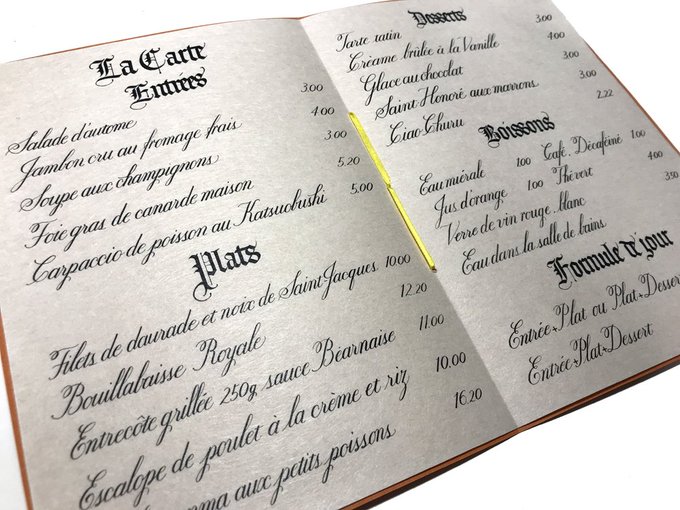 La Carte
Entrées
Salade d'autome 3.00
Jambon cru au fromage frais 4.00
Soupe aux champignons 3.00
Foie gras de canarde maison 5.20
Carpaccio de poisson au Katsuobushi 5.00
Plats
Filets de daurade et noix de Saint Jacques 10.00
Bouillabaisse Royale 12.20
Entrecôte grillée 250g sauce Béarnaise 11.00
Escalope de poulet à la crème et riz 10.00
aux petits poissons 16.20
Desserts
Tarte tatin 3.00
Créame brûlée à la Vanille 3.00
Glace au chocolat 3.00
Saint Honoré aux marrons 3.00
Ciao Churu 2.22
Boissons
Eau miérale 1.00 Café . Décaféiné 1.00
Jus d'orange 1.00 Thé vert 4.00
Verre de vin rouge . blanc 3.50
Eau dans la salle de bains
Formule de jour
Entrée+Plat ou Plat+Dessert
Entrée+Plat+Dessert